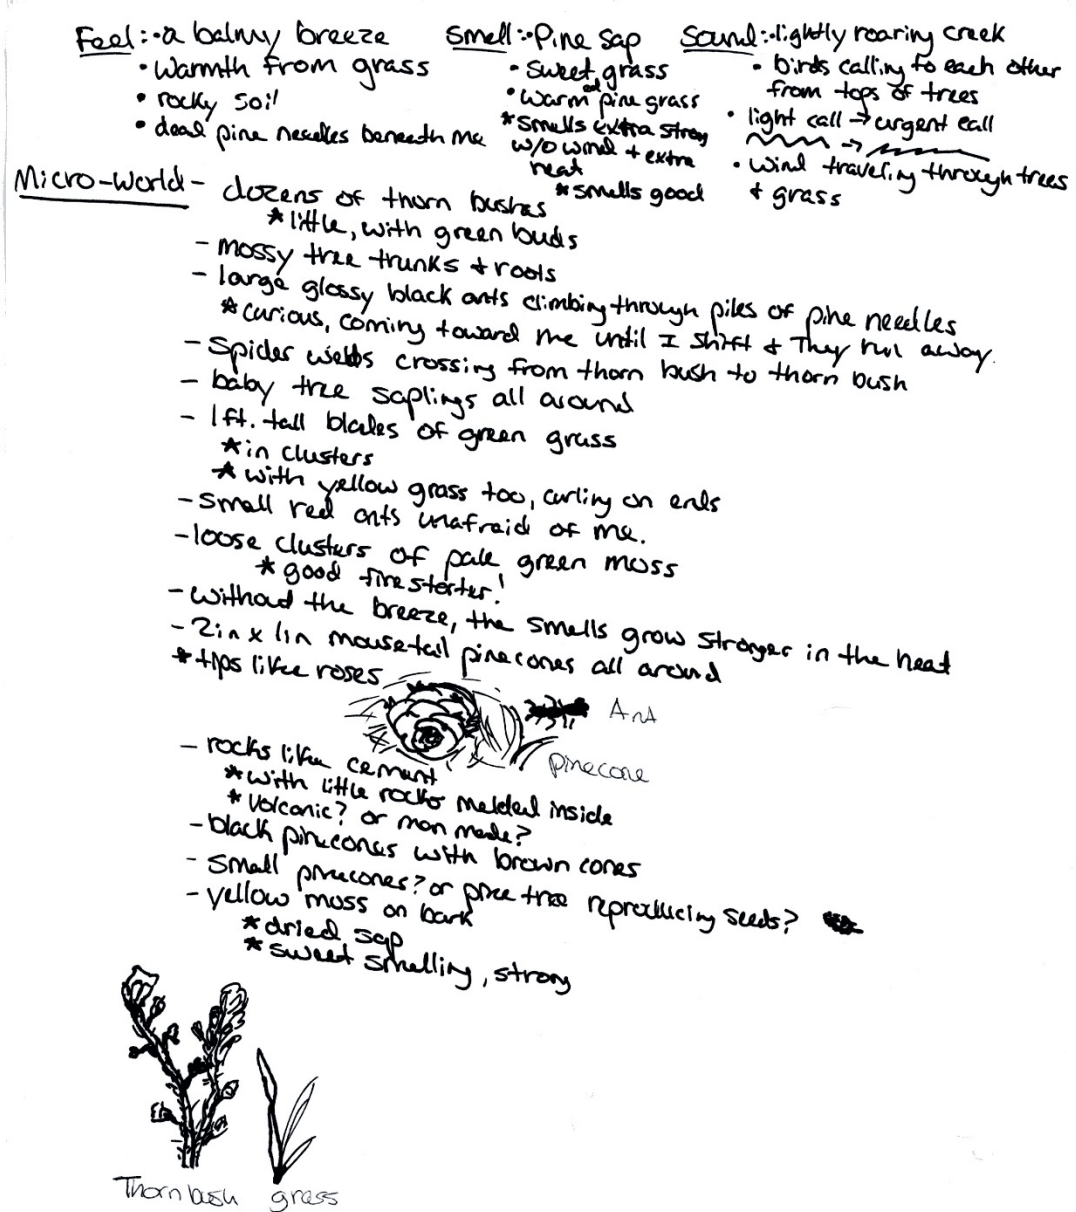 Feel: • a balmy breeze
• Warmth from grass
• rocky soil
• dead pine needles beneath me
Smell: • Pine sap
• Sweet grass
• Warm pine grass
* Smells extra strong
w/o wind + extra
heat
* smells good
Sound: • lightly roaring creek
• birds calling to each other
from tops of trees
• light call → urgent call
→
• Wind traveling through trees
+ grass
Micro-World - dozens of thorn bushes
* little, with green buds
- mossy tree trunks + roots
- large glossy black ants climbing through piles of pine needles
* curious, coming toward me until I shift + They run away.
- Spider webs crossing from thorn bush to thorn bush
- baby tree saplings all around
- 1ft. tall blades of green grass
* in clusters
* with yellow grass too, curling on ends
- Small red ants unafraid of me.
- loose clusters of pale green moss
* good firestarter!
- without the breeze, the smells grow stronger in the heat
- 2in x 1in mousetail pinecones all around
* tips like roses
Ant
pinecone
- rocks like cement
* with little rocks melded inside
* Volcanic? or man made?
- black pinecones with brown cones
- Small pinecones? or pine tree reproducing seeds?
- yellow moss on bark
* dried sap
* sweet smelling, strong
Thornbush grass